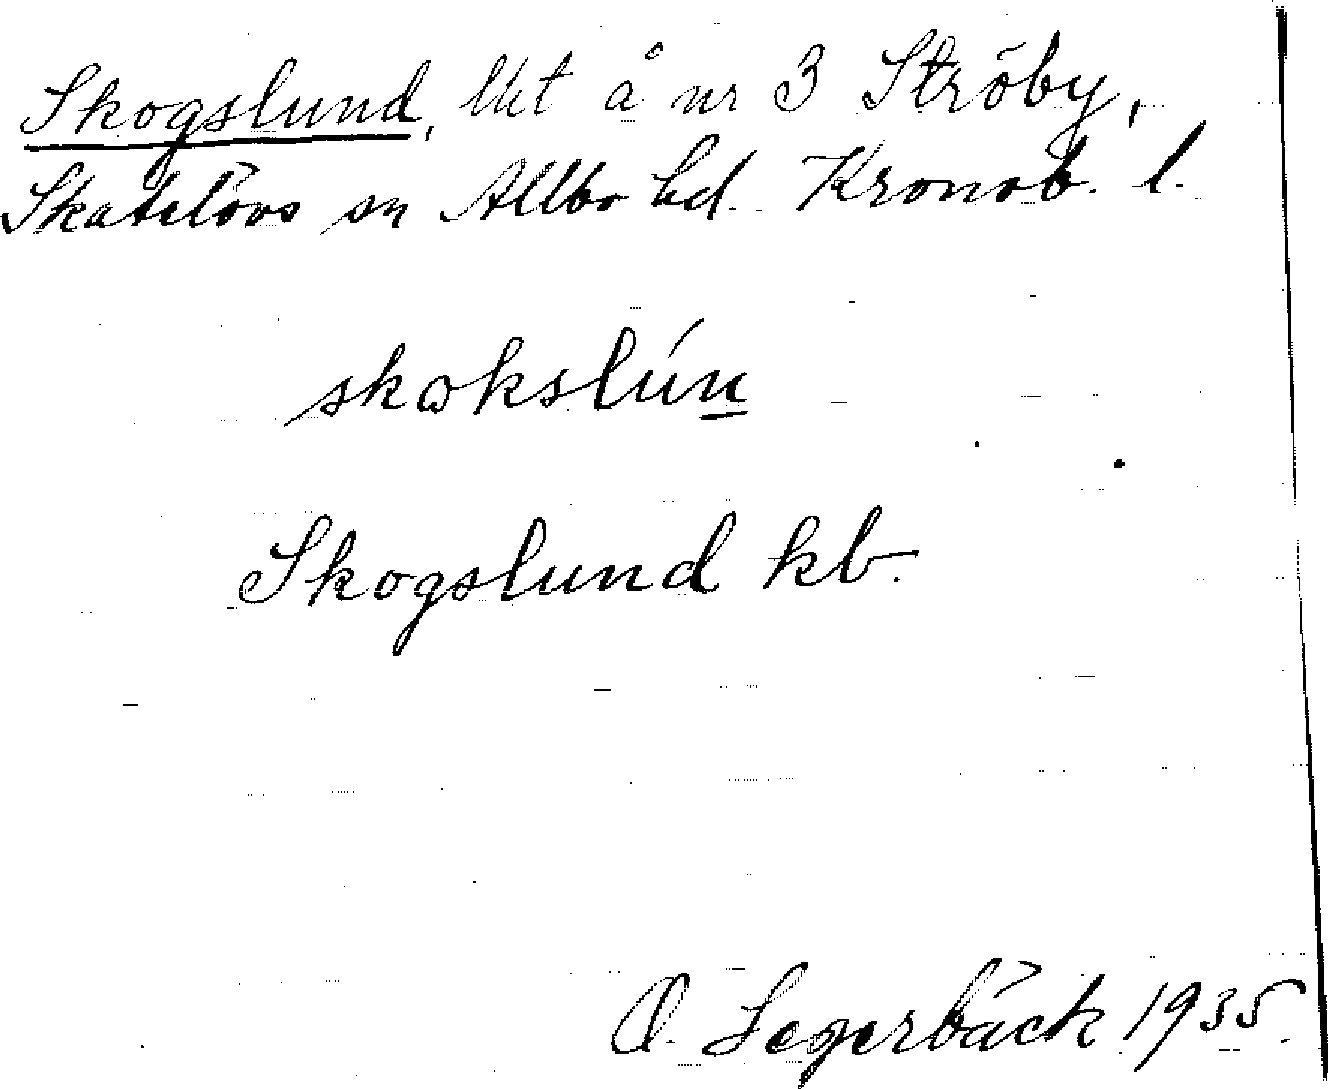 Skogslund, lht å nr 3 Ströby,
Skatelövs sn Allbo hd. Kronob. l.
skωkslún
Skogslund kb.
O. Segerbäck 1935.